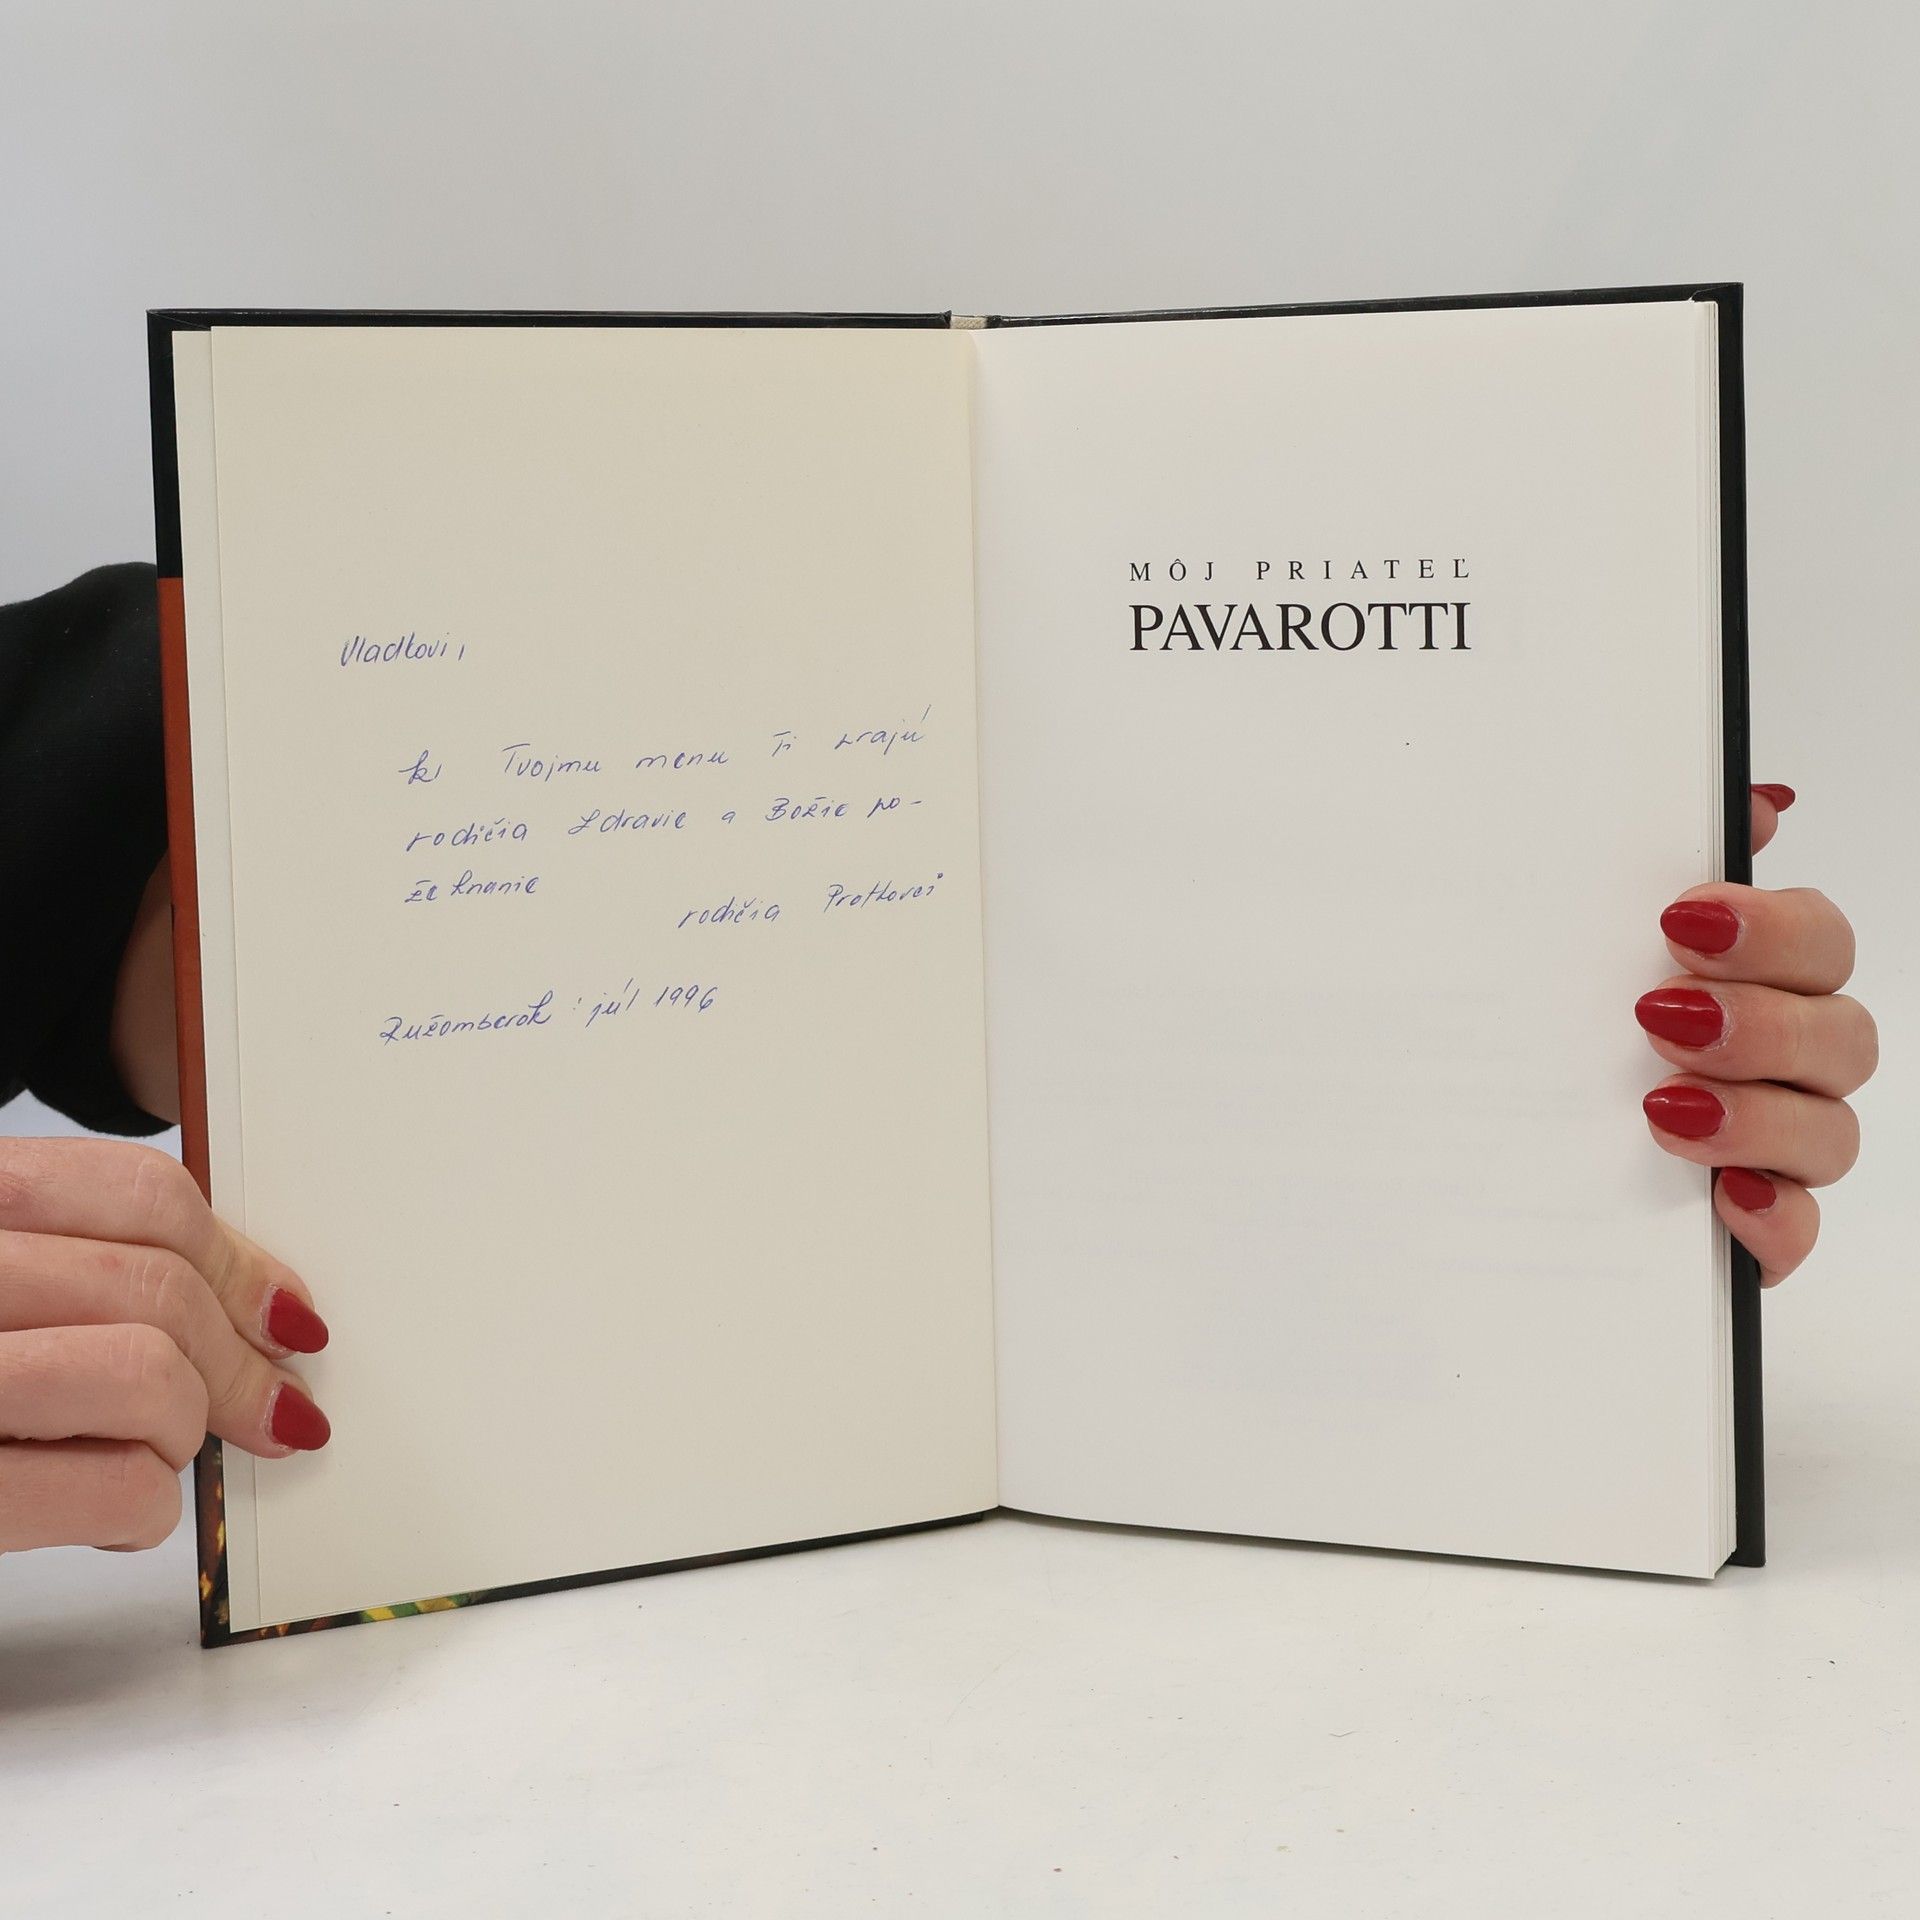 Vladkovi,
k Tvojmu menu Ti prajú
rodičia zdravie a Božie po-
žehnanie
rodičia
Ružomberok: júl 1996
MÔJ PRIATEĽ
PAVAROTTI